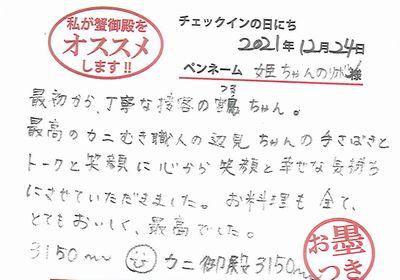 私が蟹御殿を
オススメ
します!!
チェックインの日にち
2021年12月24日
ペンネーム 姫ちゃんの 様
つる
最初から、丁寧な接客の鶴ちゃん。
最高のカニむき職人の辺見ちゃんの手さばきと
トークと笑顔に心から笑顔と幸せな気持ち
にさせていただきました。お料理も全て、
とてもおいしく、最高でした。
3150m カニ御殿3150m
お墨
つき